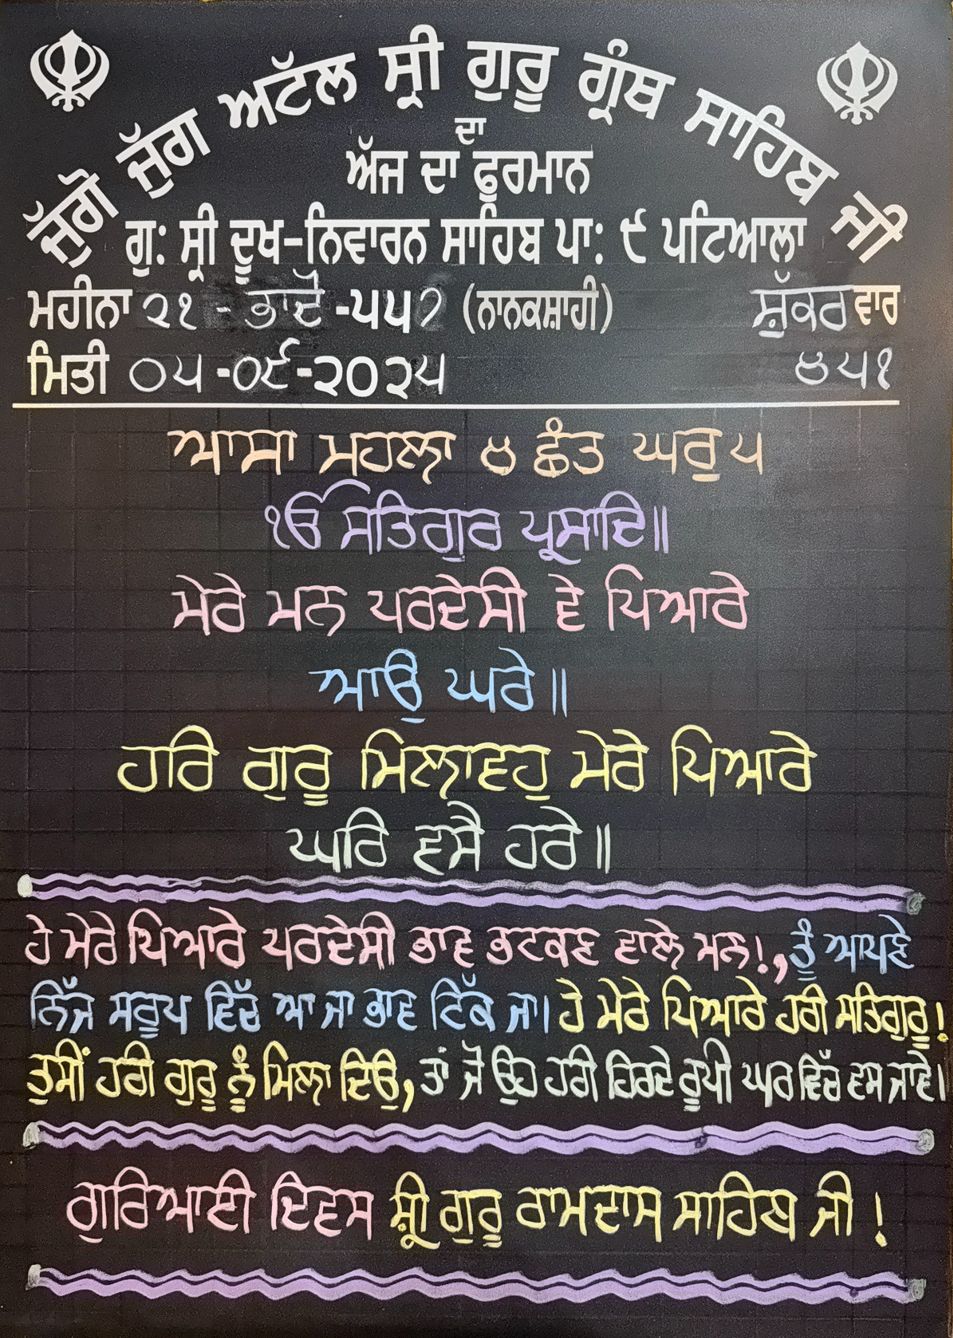 ਜੁੱਗੋ ਜੁੱਗ ਅਟੱਲ ਸ੍ਰੀ ਗੁਰੂ ਗ੍ਰੰਥ ਸਾਹਿਬ ਜੀ
ਦਾ
ਅੱਜ ਦਾ ਫੂਰਮਾਨ
ਗੁ: ਸ੍ਰੀ ਦੂਖ-ਨਿਵਾਰਨ ਸਾਹਿਬ ਪਾ: ੯ ਪਟਿਆਲਾ
ਮਹੀਨਾ ੨੧ - ਭਾਦੋਂ -੫੫੭ (ਨਾਨਕਸ਼ਾਹੀ) ਸ਼ੁੱਕਰਵਾਰ
ਮਿਤੀ ੦੫ -੦੯-੨੦੨੫ ੪੫੧
ਆਸਾ ਮਹਲਾ ੪ ਛੰਤ ਘਰੁ ੫
ੴ ਸਤਿਗੁਰ ਪ੍ਰਸਾਦਿ॥
ਮੇਰੇ ਮਨ ਪਰਦੇਸੀ ਵੇ ਪਿਆਰੇ
ਆਉ ਘਰੇ॥
ਹਰਿ ਗੁਰੂ ਮਿਲਾਵਹੁ ਮੇਰੇ ਪਿਆਰੇ
ਘਰਿ ਵਸੈ ਹਰੇ॥
ਹੇ ਮੇਰੇ ਪਿਆਰੇ ਪਰਦੇਸੀ ਭਾਵ ਭਟਕਣ ਵਾਲੇ ਮਨ!, ਤੂੰ ਆਪਣੇ
ਨਿੱਜ ਸਰੂਪ ਵਿੱਚ ਆ ਜਾ ਭਾਵ ਟਿੱਕ ਜਾ। ਹੇ ਮੇਰੇ ਪਿਆਰੇ ਹਰੀ ਸਤਿਗੁਰੂ!
ਤੁਸੀਂ ਹਰੀ ਗੁਰੂ ਨੂੰ ਮਿਲਾ ਦਿਉ, ਤਾਂ ਜੋ ਉਹ ਹਰੀ ਹਿਰਦੇ ਰੂਪੀ ਘਰ ਵਿੱਚ ਵਸ ਜਾਵੇ।
ਗੁਰਿਆਈ ਦਿਵਸ ਸ਼੍ਰੀ ਗੁਰੂ ਰਾਮਦਾਸ ਸਾਹਿਬ ਜੀ !